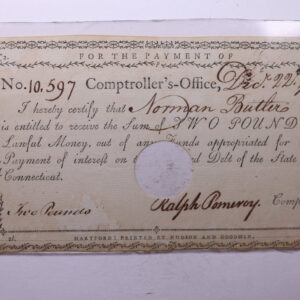 FOR THE PAYMENT OF
No. 10,597 Comptroller's-Office, Dec'r. 22
I hereby certify that Norman Butler
is entitled to receive the Sum of TWO POUND
Lawful Money, out of any Funds appropriated for
Payment of interest on the Debt of the State
Connecticut.
Two Pounds Ralph Pomeroy Comp
HARTFORD: PRINTED BY HUDSON AND GOODWIN.